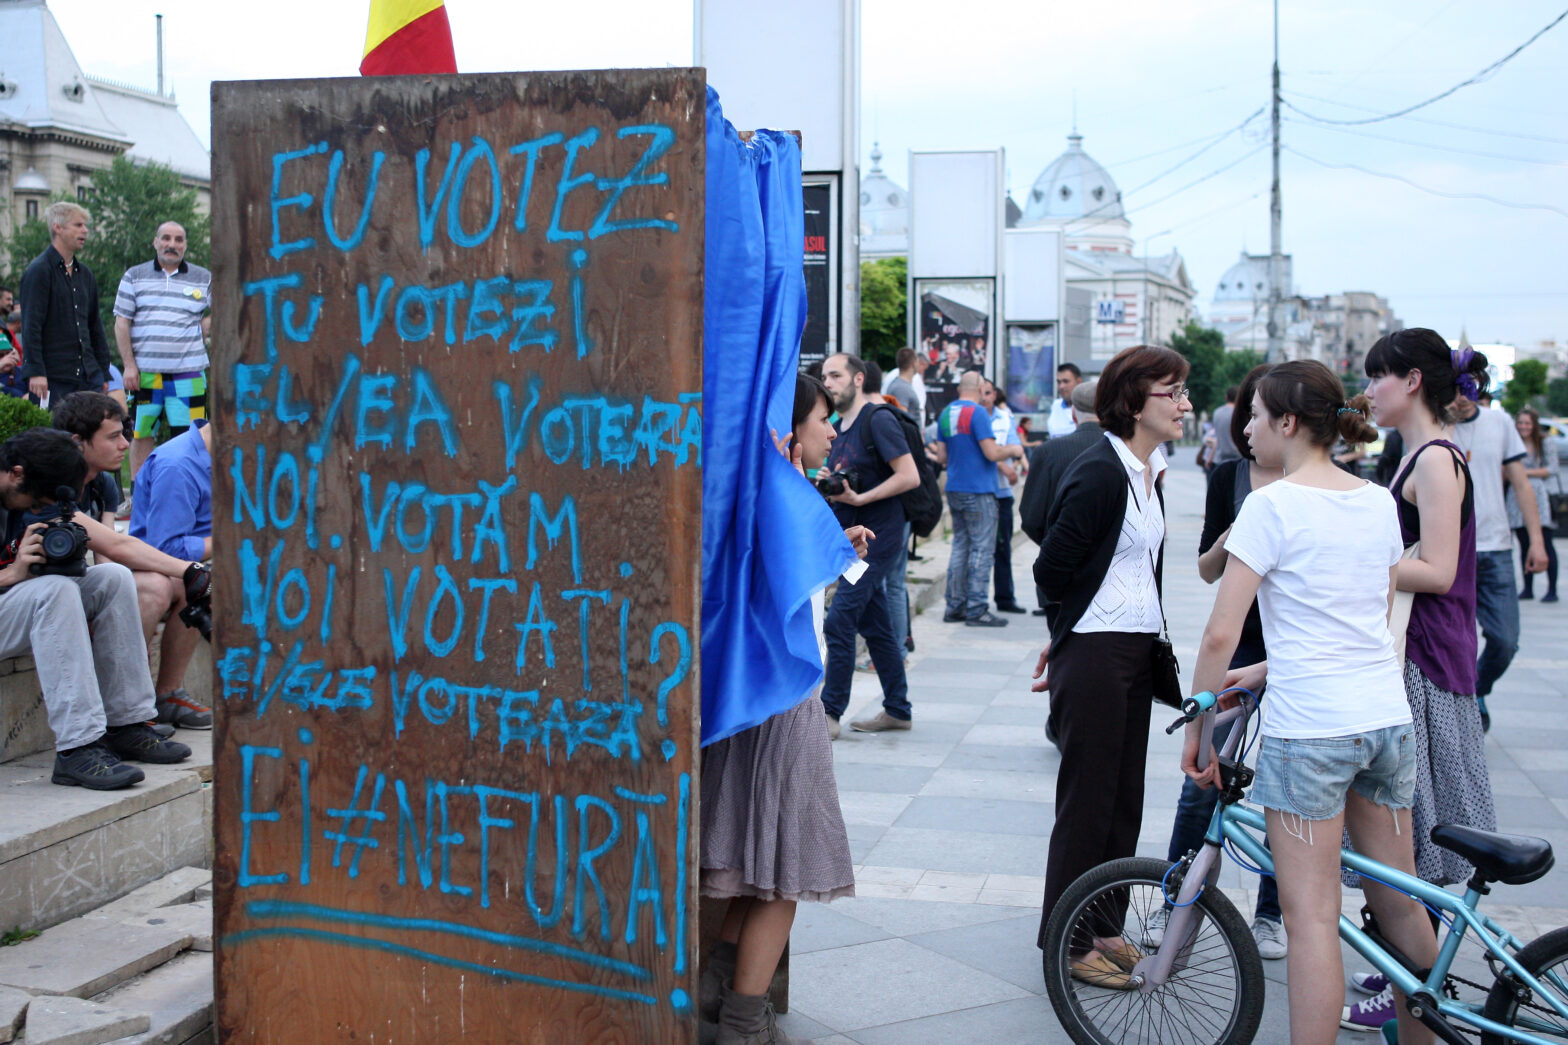 EU VOTEZ
TU VOTEZI.
EL/EA VOTEAZĂ
NOI. VOTĂM.
VOI VOTAȚI?
EI/ELE VOTEAZĂ?
EI #NEFURĂ!
M